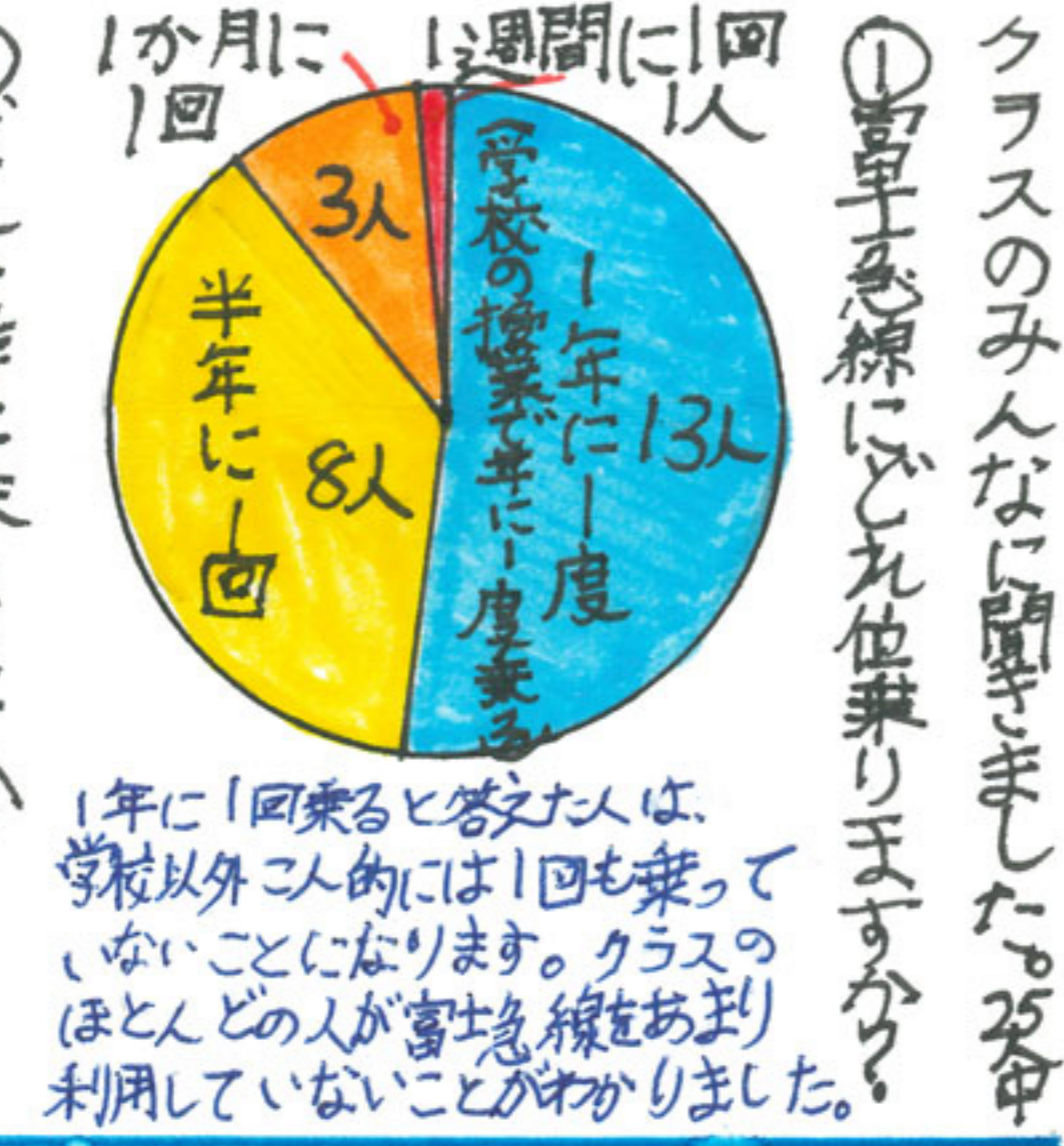 クラスのみんなに聞きました。25人中
①富士急線にどれ位乗りますか?
1週間に1回
1人
1か月に
1回
3人
1年に1度
13人
(学校の授業で年に1度乗る)
半年に1回
8人
1年に1回乗ると答えた人は、
学校以外こ人的には1回も乗って
いないことになります。クラスの
ほとんどの人が富士急線をあまり
利用していないことがわかりました。